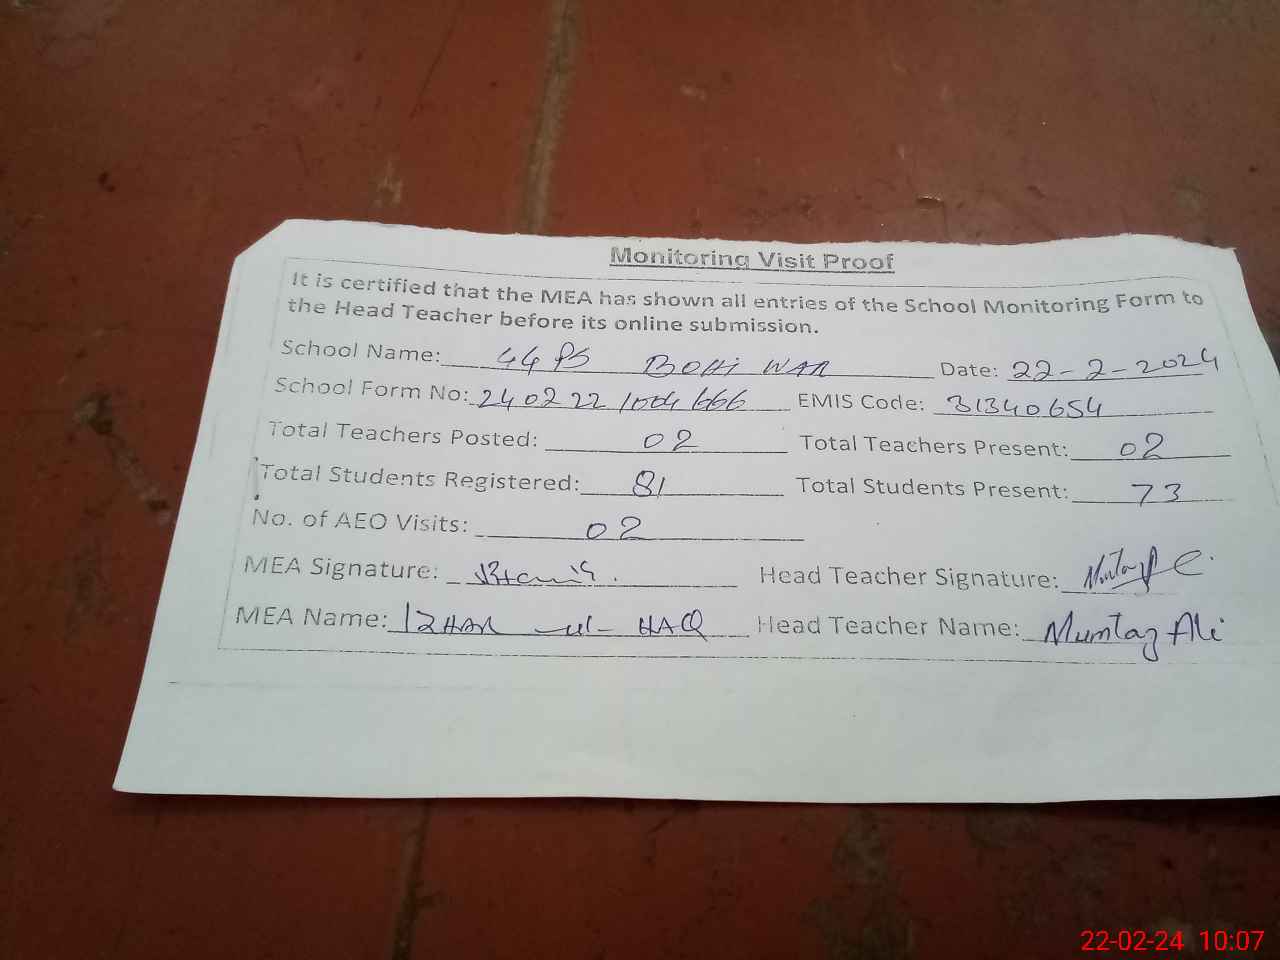 Monitoring Visit Proof
It is certified that the MEA has shown all entries of the School Monitoring Form to
the Head Teacher before its online submission.
School Name: 44 PS BOHI WAR Date: 22-2-2024
School Form No: 240222 1004 666 EMIS Code: 31340654
Total Teachers Posted: 02 Total Teachers Present: 02
Total Students Registered: 81 Total Students Present: 73
No. of AEO Visits: 02
MEA Signature: Head Teacher Signature:
MEA Name: IZHAR ul-HAQ Head Teacher Name: Mumtaz Ali
22-02-24 10:07